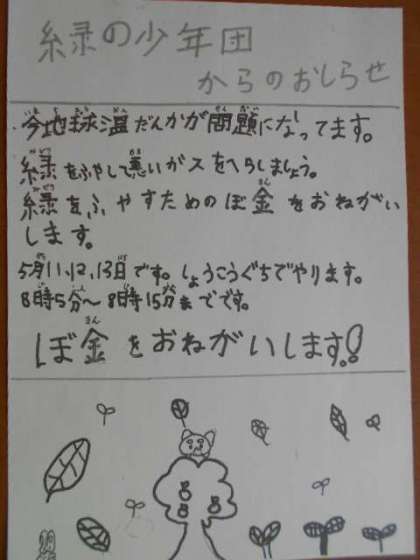 緑の少年団
からのおしらせ
今地球温だんかが問題になってます。
緑をふやして悪いガスをへらしましょう。
緑をふやすためのぼ金をおねがい
します。
5月11、12、13日です。しょうこうぐちでやります。
8時5分～8時15分までです。
ぼ金をおねがいします!!